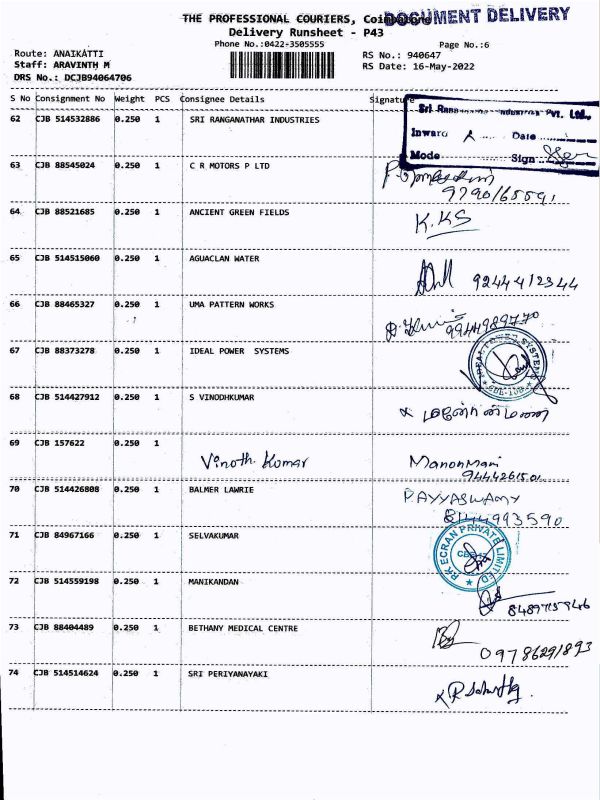 THE PROFESSIONAL COURIERS, Coimbatore
DOCUMENT DELIVERY
Delivery Runsheet - P43
Phone No.:0422-3505555
Page No.:6
Route: ANAIKATTI
RS No.: 940647
Staff: ARAVINTH M
RS Date: 16-May-2022
DRS No.: DCJB94064706
S No Consignment No Weight PCS Consignee Details Signature
62 CJB 514532886 0.250 1 SRI RANGANATHAR INDUSTRIES
Pvt. Ltd.,
Inward Date
Mode Sign
63 CJB 88545024 0.250 1 C R MOTORS P LTD
9790165591
64 CJB 88521685 0.250 1 ANCIENT GREEN FIELDS
K.KS
65 CJB 514515060 0.250 1 AGUACLAN WATER
9244412344
66 CJB 88465327 0.250 1 UMA PATTERN WORKS
9944989770
67 CJB 88373278 0.250 1 IDEAL POWER SYSTEMS
68 CJB 514427912 0.250 1 S VINODHKUMAR
69 CJB 157622 0.250 1
Vinoth. Kumar ManonMani
9444261501
70 CJB 514426808 0.250 1 BALMER LAWRIE
PAYYASWAMY
8144993590
71 CJB 84967166 0.250 1 SELVAKUMAR
RK ECRAN PRIVATE LIMITED
72 CJB 514559198 0.250 1 MANIKANDAN
73 CJB 88404489 0.250 1 BETHANY MEDICAL CENTRE
09786291893
74 CJB 514514624 0.250 1 SRI PERIYANAYAKI